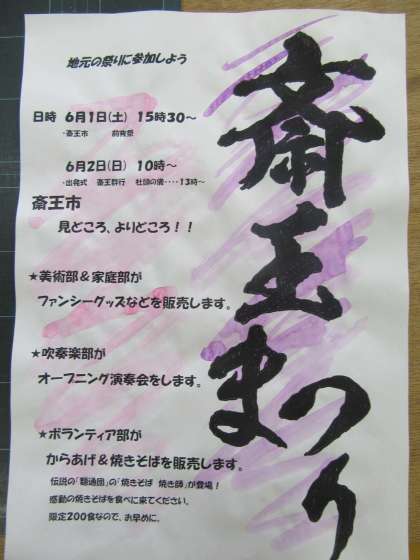 斎王まつり
地元の祭りに参加しよう
日時 6月1日(土) 15時30~
・斎王市 前夜祭
6月2日(日) 10時~
・出発式 斎王群行 社頭の儀‥‥13時~
斎王市
見どころ、よりどころ！！
★美術部＆家庭部が
ファンシーグッズなどを販売します。
★吹奏楽部が
オープニング演奏会をします。
★ボランティア部が
からあげ＆焼きそばを販売します。
伝説の「麺通団」の「焼きそば 焼き師」が登場！
感動の焼きそばを食べに来てください。
限定200食なので、お早めに。